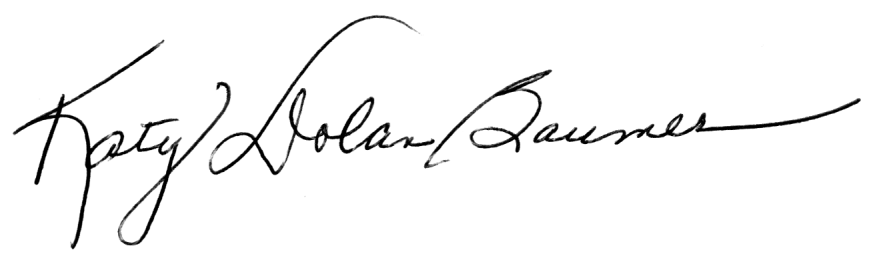 Katy Dolan Baumer